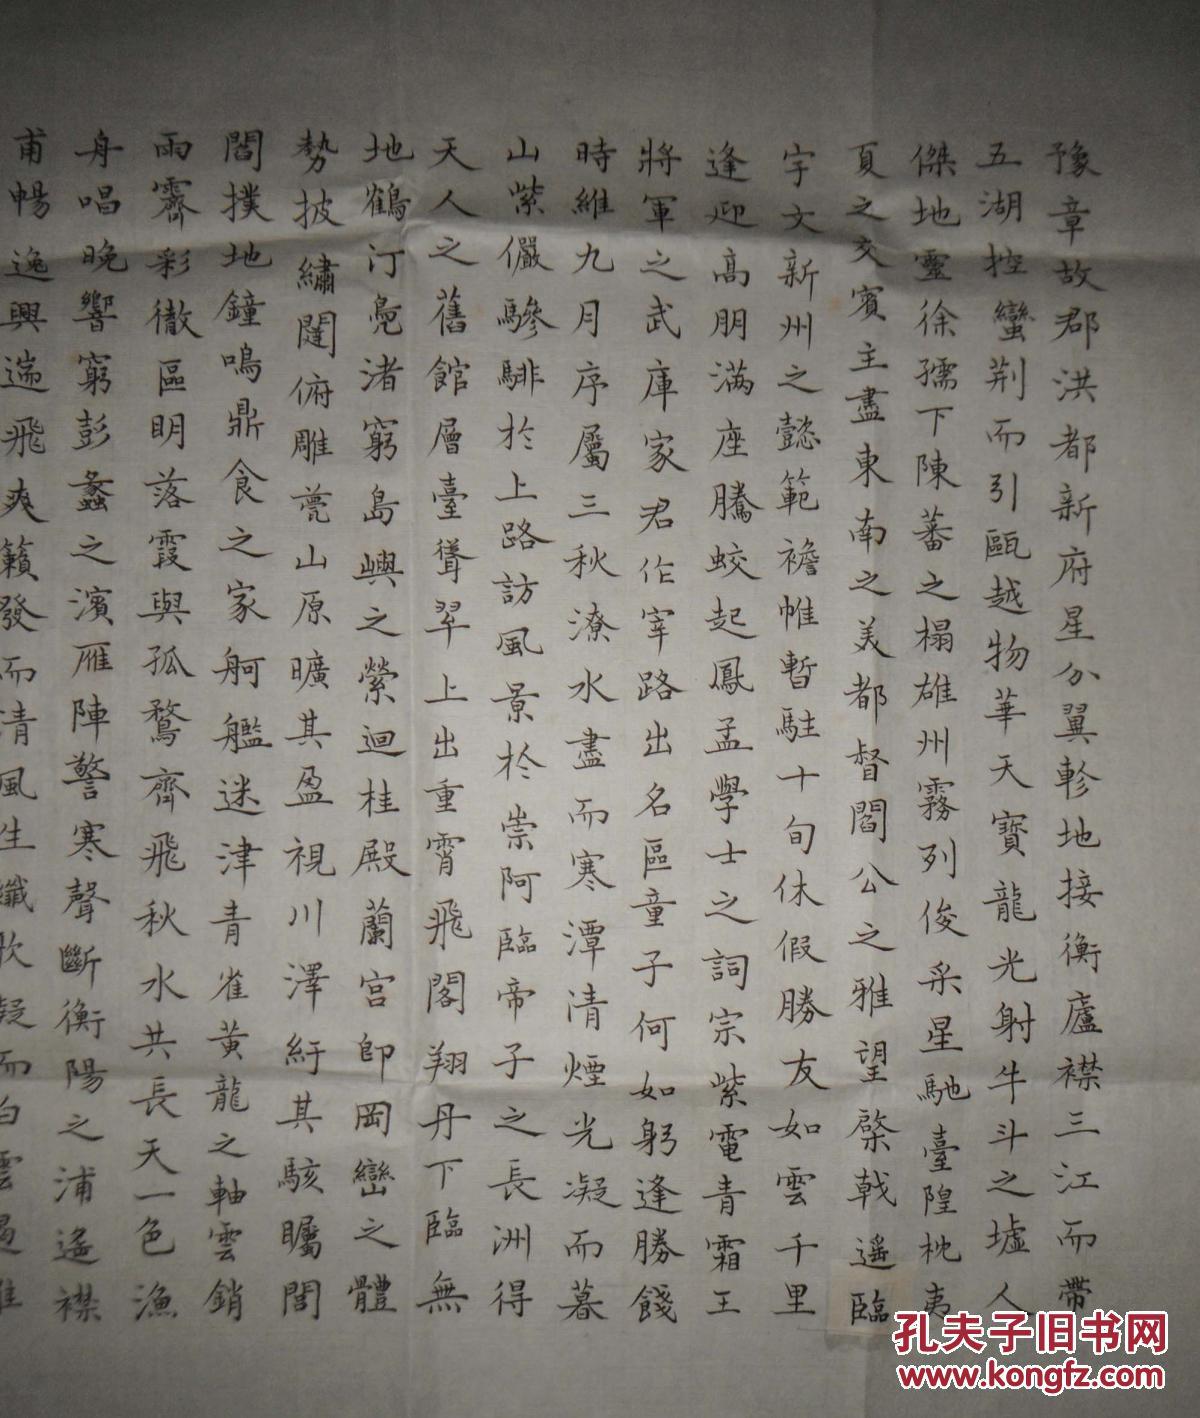 豫章故郡洪都新府星分翼軫地接衡廬襟三江而帶
五湖控蠻荆而引甌越物華天寶龍光射牛斗之墟人
傑地靈徐孺下陳蕃之榻雄州霧列俊采星馳臺隍枕夷
夏之交賓主盡東南之美都督閻公之雅望棨戟遥臨
宇文新州之懿範襜帷暫駐十旬休假勝友如雲千里
逢迎高朋滿座騰蛟起鳳孟學士之詞宗紫電青霜王
將軍之武庫家君作宰路出名區童子何如躬逢勝餞
時維九月序屬三秋潦水盡而寒潭清煙光凝而暮
山紫儼驂騑於上路訪風景於崇阿臨帝子之長洲得
天人之舊館層臺聳翠上出重霄飛閣翔丹下臨無
地鶴汀鳧渚窮島嶼之縈迴桂殿蘭宮即岡巒之體
勢披繡闥俯雕甍山原曠其盈視川澤紆其駭矚閭
閻撲地鐘鳴鼎食之家舸艦迷津青雀黃龍之軸雲銷
雨霽彩徹區明落霞與孤鶩齊飛秋水共長天一色漁
舟唱晚響窮彭蠡之濱雁陣警寒聲斷衡陽之浦遙襟
甫暢逸興遄飛爽籟發而清風生纖歌凝而白雲遏
孔夫子旧书网
www.kongfz.com